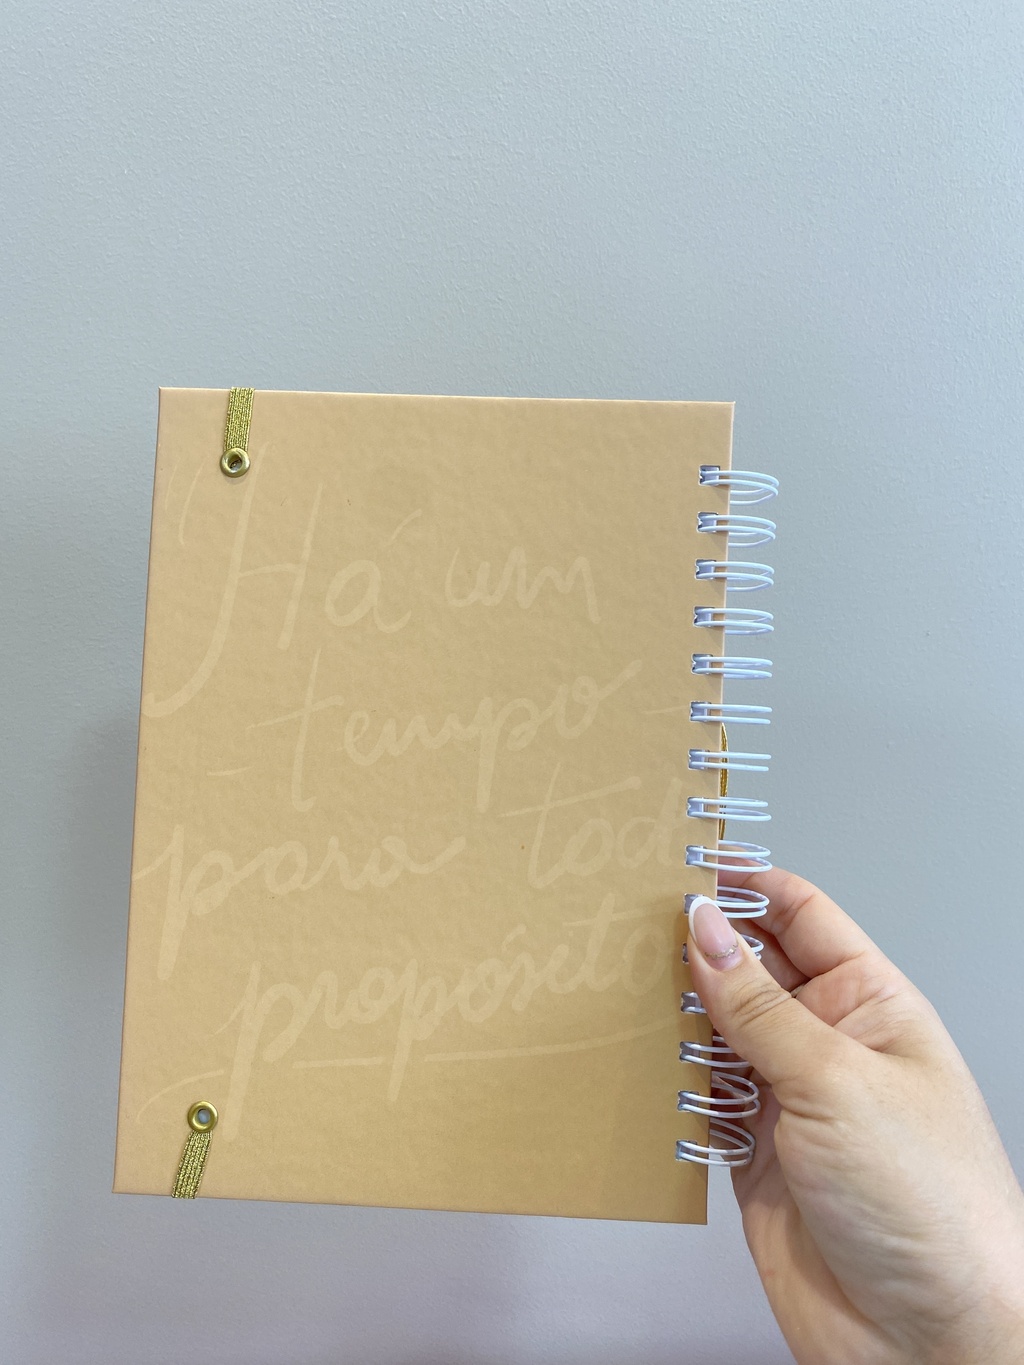 Há um
tempo
para tod
propósito